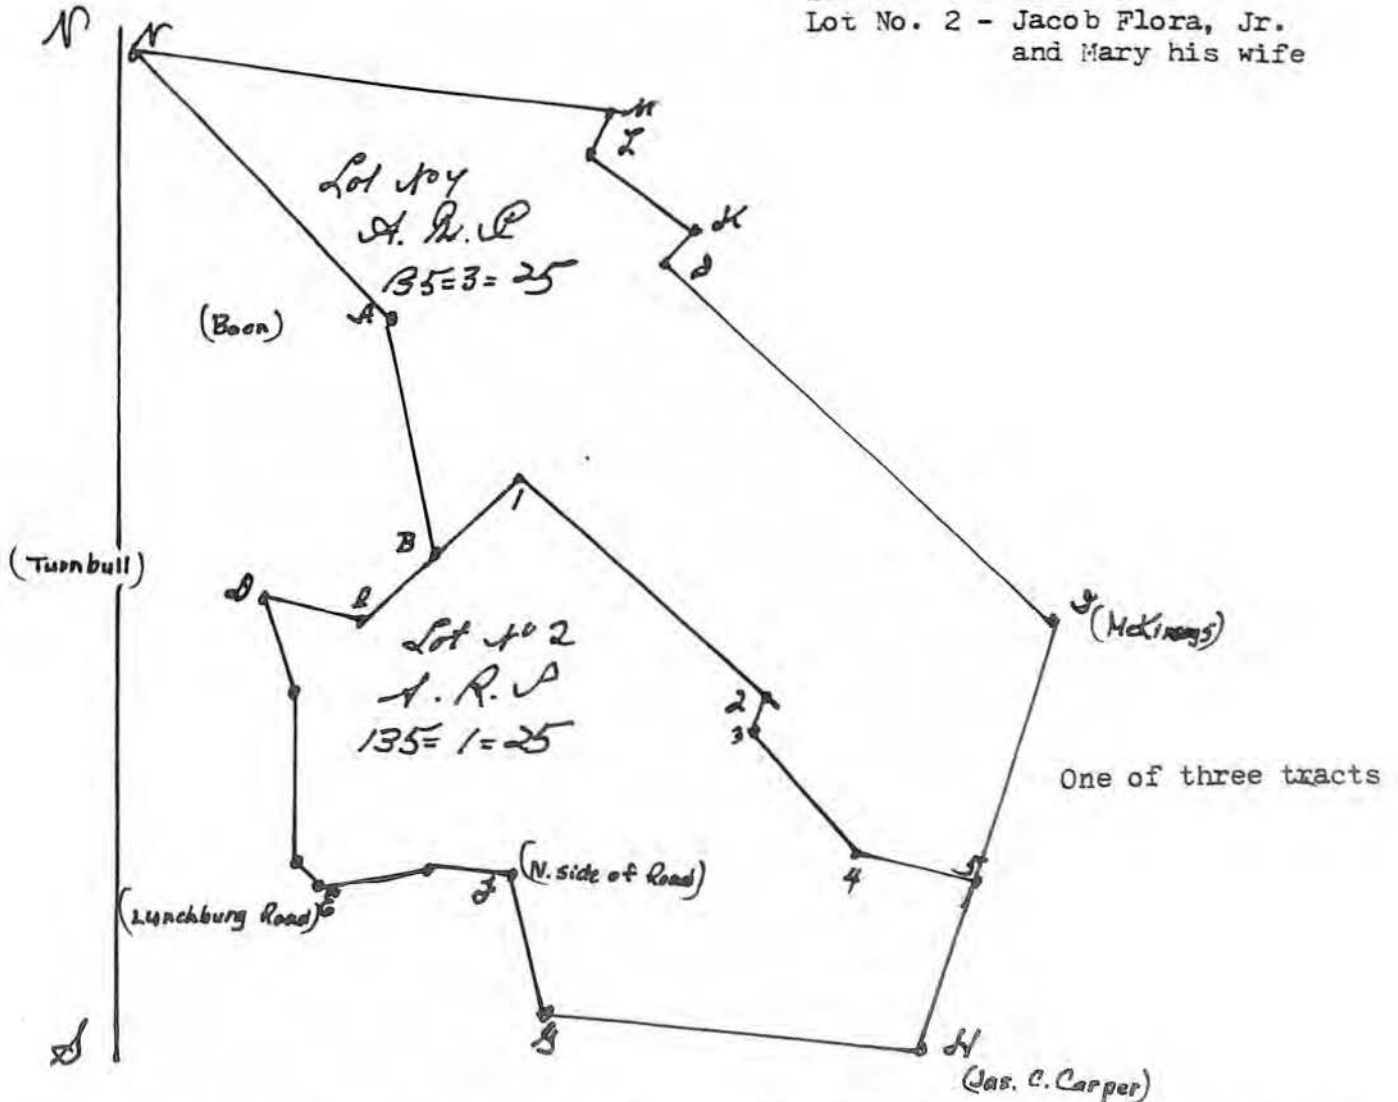 Lot No. 2 - Jacob Flora, Jr.
and Mary his wife
N
N
M
L
K
J
Lot No 4
A. R. P
135=3=25
(Boon)
A
1
B
(Turnbull)
D
C
Lot No 2
A. R. P
135=1=25
I
2
3
One of three tracts
4
5
(N. side of Road)
F
(Lynchburg Road)
E
G
H
S
(Jas. C. Carper)